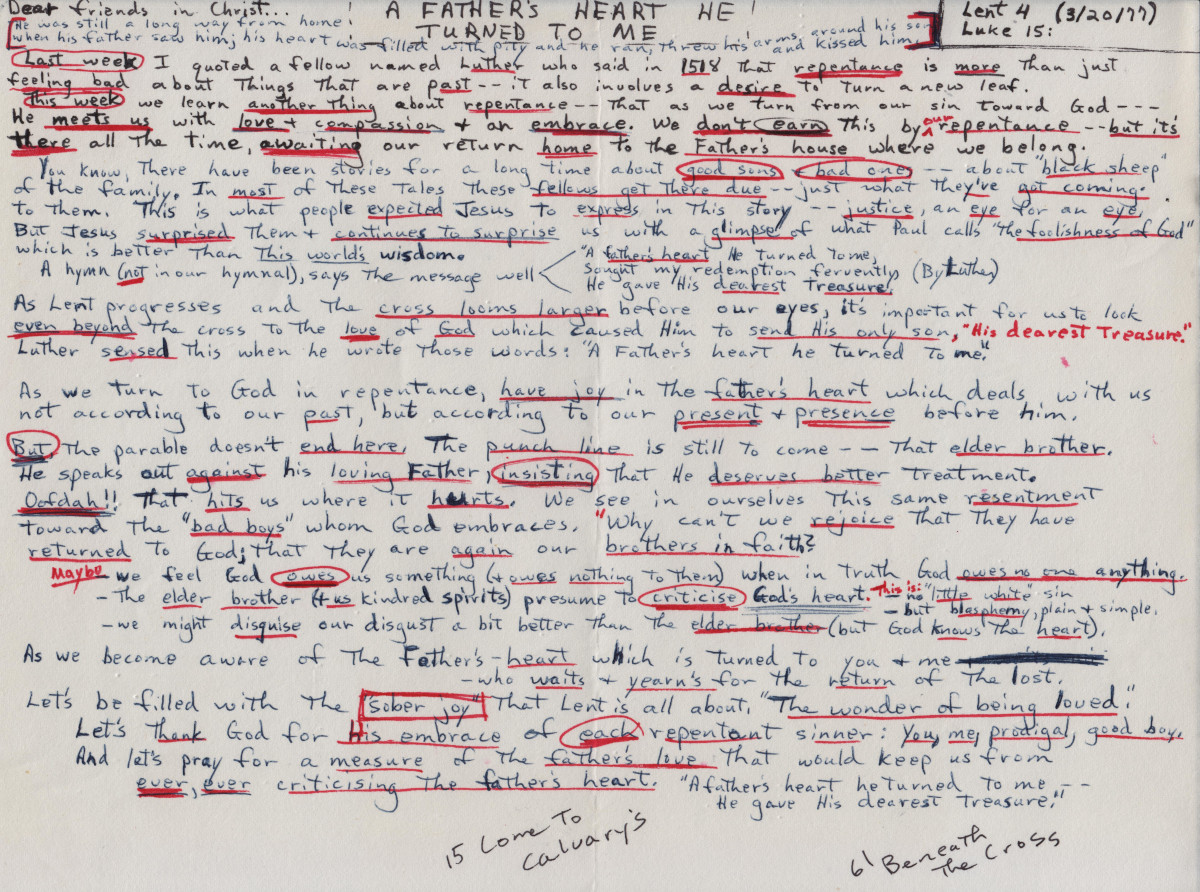 Dear friends in Christ... A FATHER'S HEART HE! Lent 4 (3/20/77)
TURNED TO ME Luke 15:
He was still a long way from home!
when his father saw him; his heart was filled with pity and he ran, threw his arms around his son and kissed him.
Last week I quoted a fellow named Luther who said in 1518 that repentance is more than just
feeling bad about things that are past -- it also involves a desire to turn a new leaf.
This week we learn another thing about repentance -- That as we turn from our sin toward God ---
He meets us with love + compassion + an embrace. We don't earn this by our repentance -- but it's
there all the time, awaiting our return home to the Father's house where we belong.
You know, there have been stories for a long time about good sons + bad one -- about "black sheep"
of the family. In most of these tales these fellows get there due -- just what they've got coming.
to them. This is what people expected Jesus to express in this story -- justice, an eye for an eye.
But Jesus surprised them + continues to surprise us with a glimpse of what Paul calls "the foolishness of God"
which is better than this world's wisdom.
A hymn (not in our hymnal), says the message well
"A father's heart He turned to me,
Sought my redemption fervently (By Luther)
He gave His dearest Treasure.
As Lent progresses and the cross looms larger before our eyes, it's important for us to look
even beyond the cross to the love of God which caused Him to send His only son, "His dearest Treasure."
Luther sensed this when he wrote those words: "A Father's heart he turned to me."
As we turn to God in repentance, have joy in the father's heart which deals with us
not according to our past, but according to our present + presence before him.
But, the parable doesn't end here. The punch line is still to come -- That elder brother.
He speaks out against his loving Father, insisting that He deserves better treatment.
Oofdah!! That hits us where it hearts. We see in ourselves this same resentment
toward the "bad boys" whom God embraces. "Why can't we rejoice that they have
returned to God; that they are again our brothers in faith?
Maybe - we feel God owes us something (+ owes nothing to them) when in truth God owes no one anything.
- The elder brother (+ us kindred spirits) presume to criticise God's heart. This is: no "little white" sin
- but blasphemy, plain + simple.
- we might disguise our disgust a bit better than the elder brother (but God knows the heart).
As we become aware of the Father's - heart which is turned to you + me
- who waits + yearn's for the return of the lost.
Let's be filled with the "sober joy" that Lent is all about. "The wonder of being loved."
Let's thank God for his embrace of each repentant sinner: you, me, prodigal, good boy.
And let's pray for a measure of the father's love that would keep us from
ever, ever criticising the father's heart. "A father's heart he turned to me --
He gave His dearest treasure."
15 Come To
Calvary's
61 Beneath
the Cross